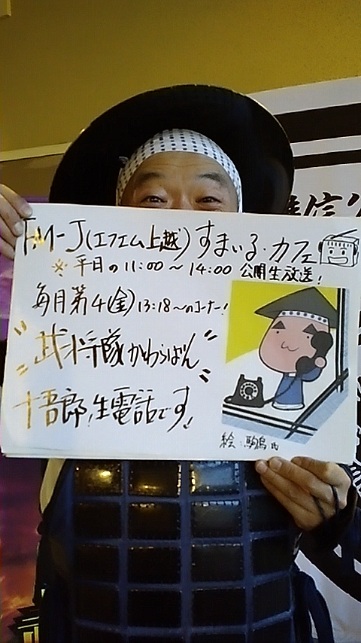 FM-J(エフエム上越)すまいる・カフェ
※平日の11:00～14:00公開生放送!
毎月第4(金)13:18～のコーナー!
"武将隊かわらばん"
十吾郎、生電話です!